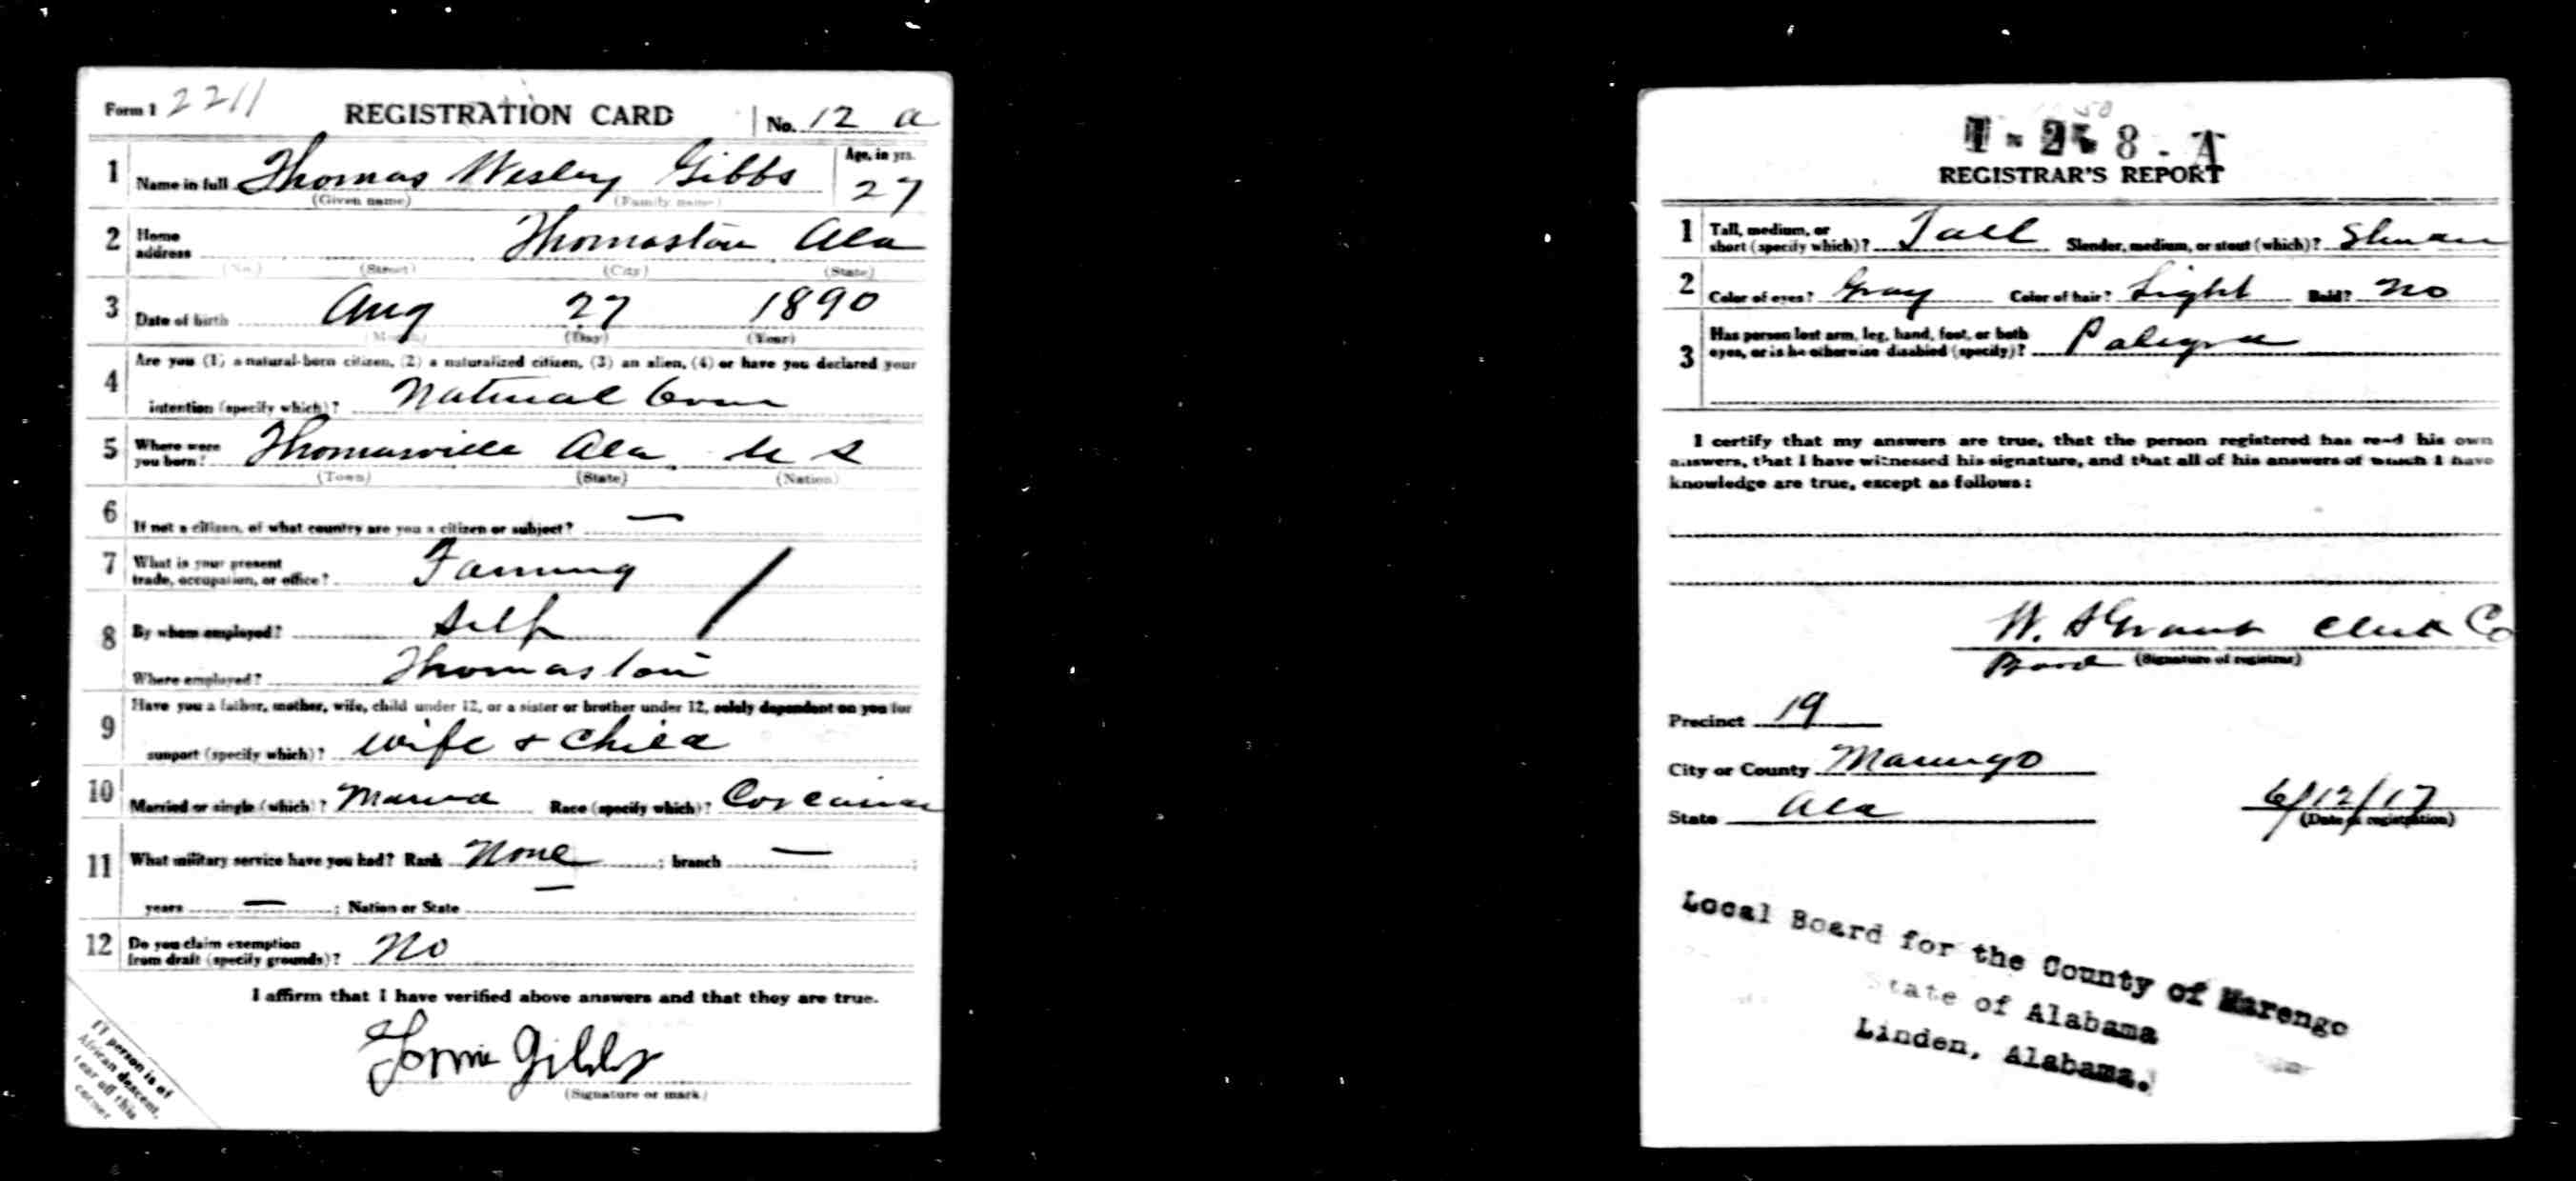 Form 1 2211 REGISTRATION CARD No. 12 a
1 Name in full Thomas Wesley Gibbs Age, in yrs. 27
(Given name) (Family name)
2 Home address Thomaston Ala
(No.) (Street) (City) (State)
3 Date of birth Aug 27 1890
(Month) (Day) (Year)
4 Are you (1) a natural-born citizen, (2) a naturalized citizen, (3) an alien, (4) or have you declared your
intention (specify which)? Natural born
5 Where were you born? Thomasville Ala U S
(Town) (State) (Nation)
6 If not a citizen, of what country are you a citizen or subject? —
7 What is your present trade, occupation, or office? Farming
8 By whom employed? Self
Where employed? Thomaston
9 Have you a father, mother, wife, child under 12, or a sister or brother under 12, solely dependent on you for
support (specify which)? wife + child
10 Married or single (which)? Married Race (specify which)?
11 What military service have you had? Rank None ; branch — ;
years — ; Nation or State —
12 Do you claim exemption from draft (specify grounds)? No
I affirm that I have verified above answers and that they are true.
Tomie Gibbs
(Signature or mark)
If person is of
African descent,
tear off this
corner
REGISTRAR'S REPORT
1 Tall, medium, or short (specify which)? Tall Slender, medium, or stout (which)?
2 Color of eyes? Gray Color of hair? Light Bald? No
3 Has person lost arm, leg, hand, foot, or both
eyes, or is he otherwise disabled (specify)?
I certify that my answers are true, that the person registered has read his own
answers, that I have witnessed his signature, and that all of his answers of which I have
knowledge are true, except as follows:
W. S Grant Clerk Co
Board (Signature of registrar)
Precinct 19
City or County Marengo
State Ala 6/12/17
(Date of registration)
Local Board for the County of Marengo
State of Alabama
Linden, Alabama.